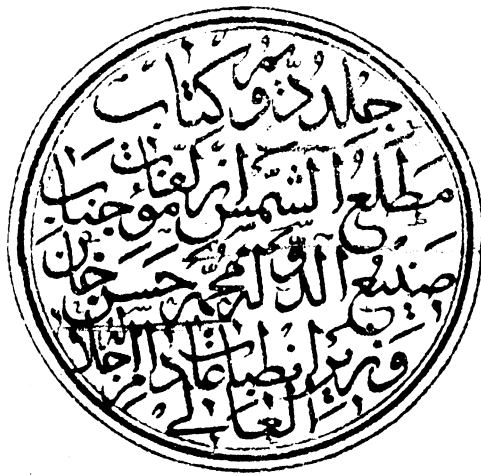 جلد دویم کتاب
مطلع الشمس از تالیفات جناب
صنیع الدوله محمد حسن خان
وزیر انطباعات دام اجلاله
العالی